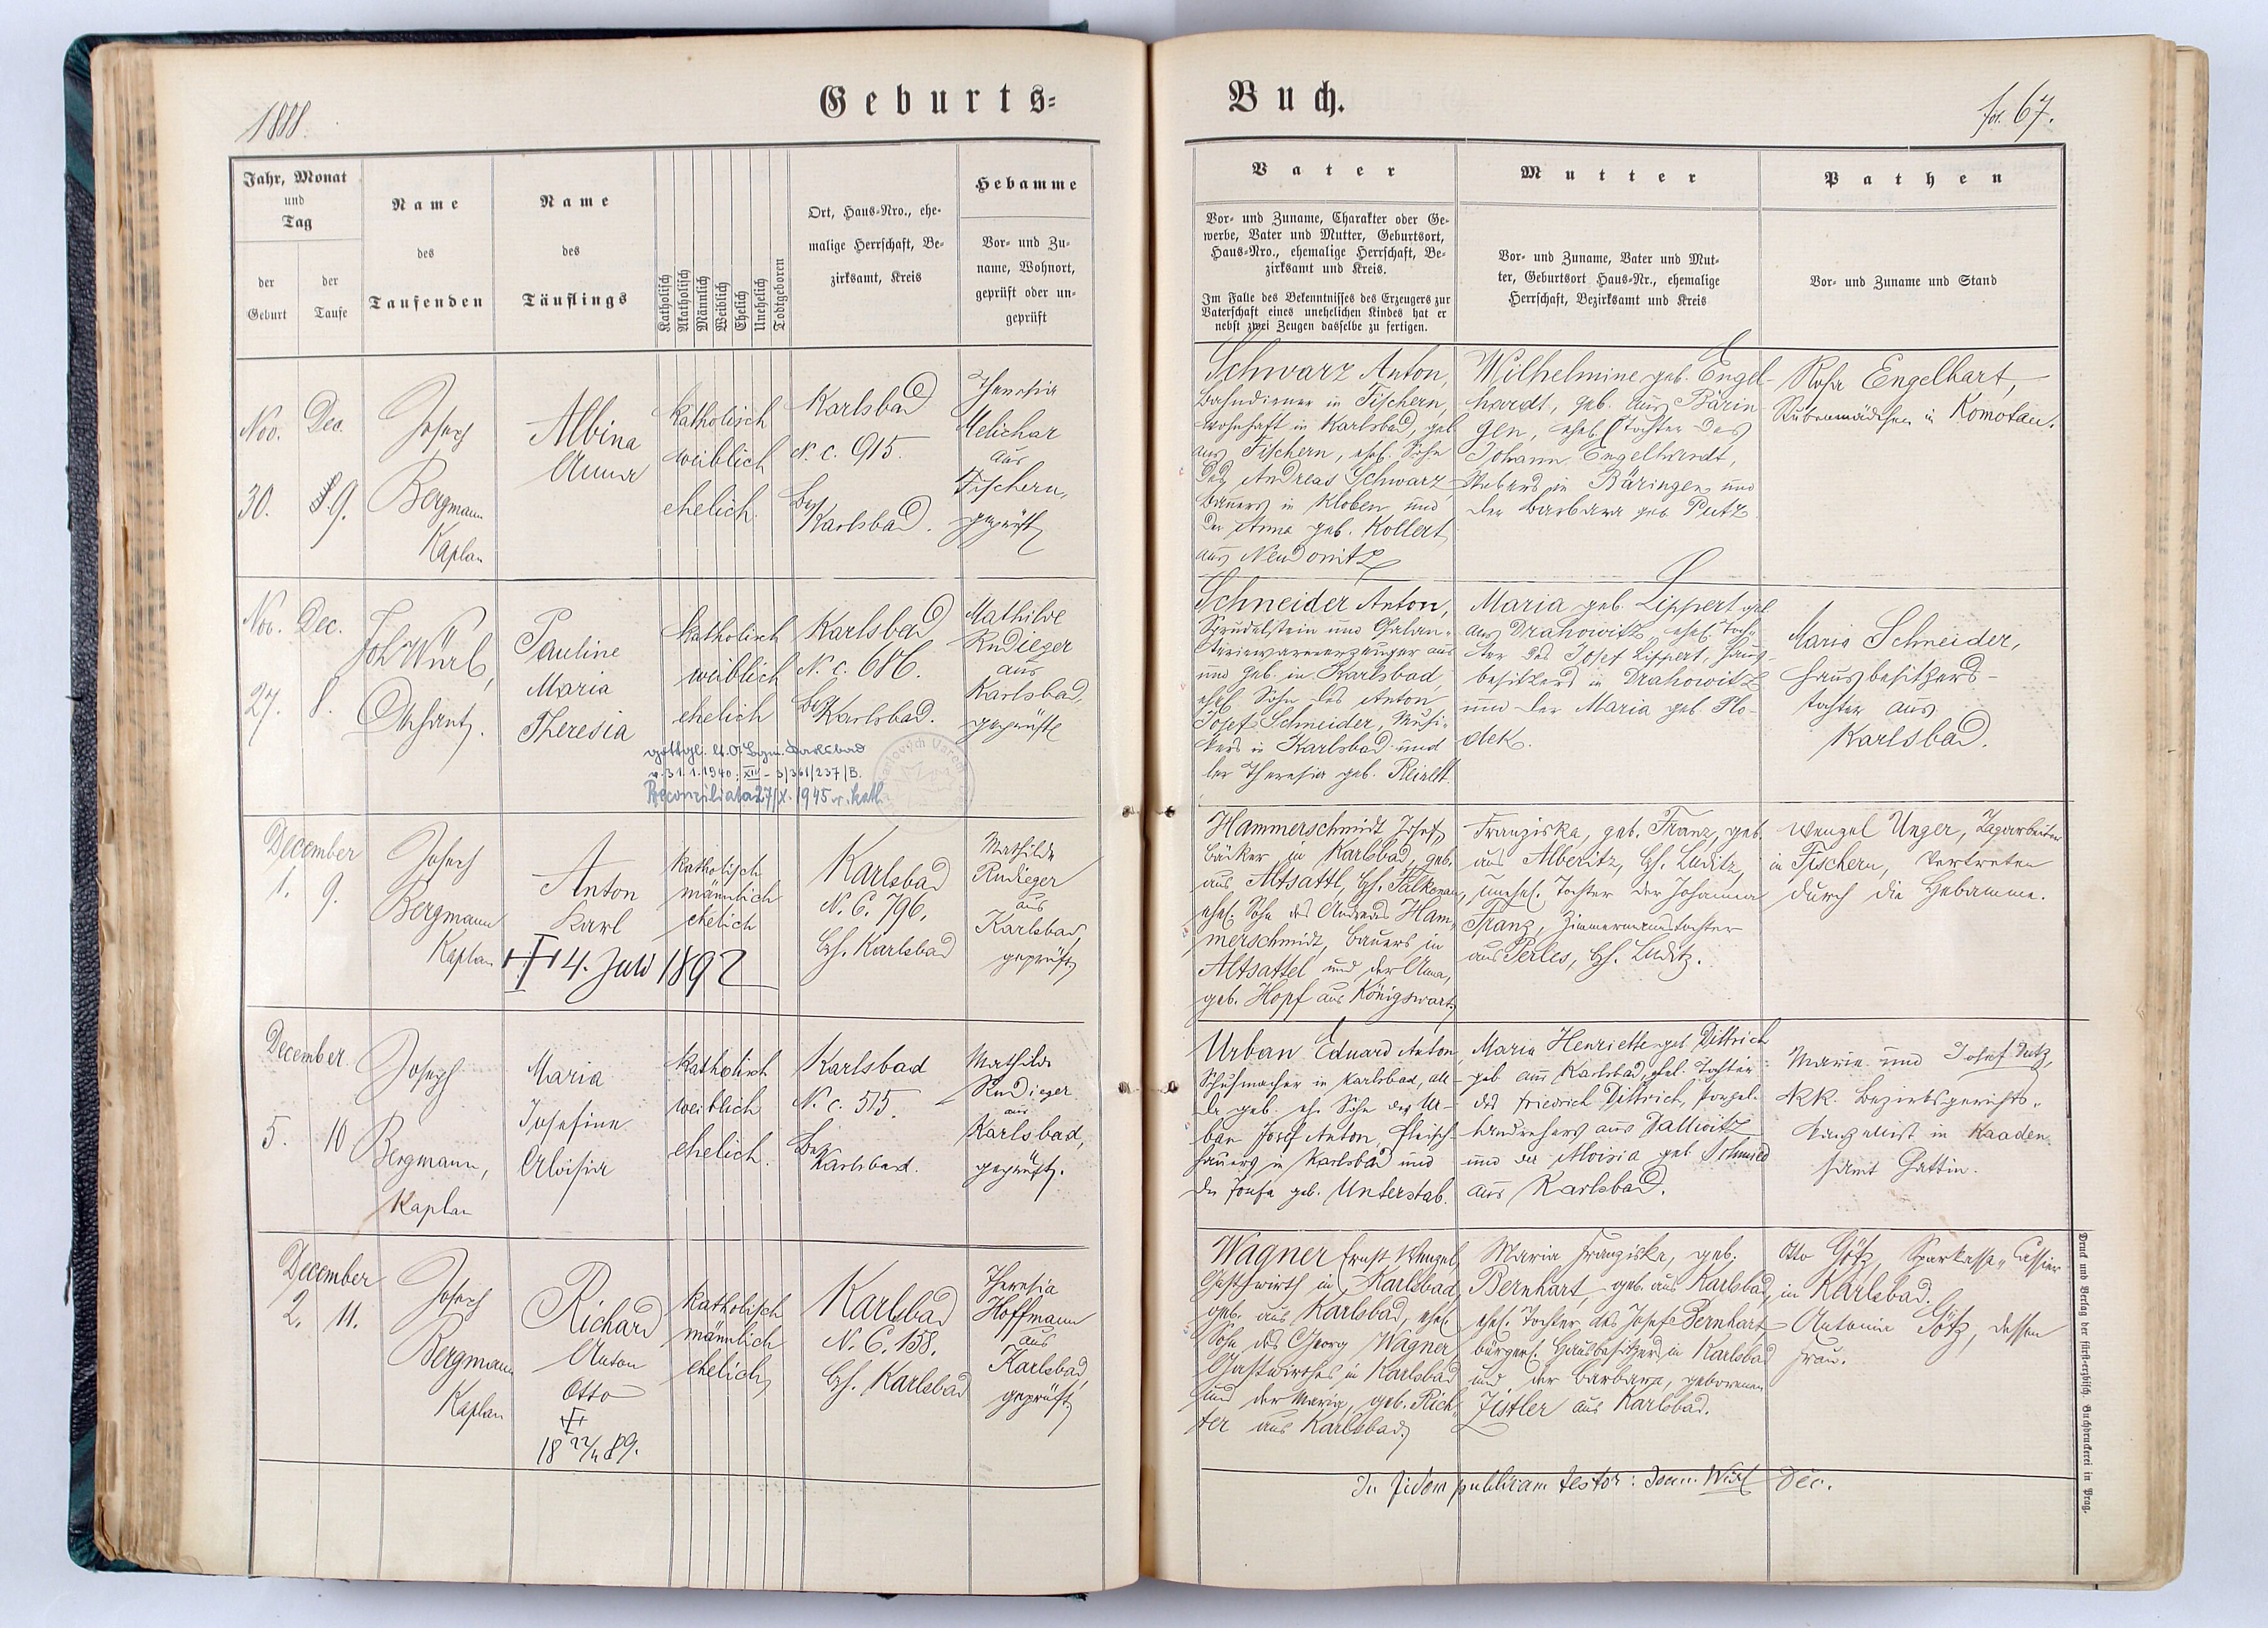 1888.
Geburts-
Buch.
fol. 67.
Jahr, Monat
und
Tag
der
Geburt
der
Taufe
Name
des
Taufenden
Name
des
Täuflings
Katholisch
Akatholisch
Männlich
Weiblich
Ehelich
Unehelich
Todtgeboren
Ort, Haus-Nro., ehe-
malige Herrschaft, Be-
zirksamt, Kreis
Hebamme
Vor- und Zu-
name, Wohnort,
geprüft oder un-
geprüft
Vater
Vor- und Zuname, Charakter oder Ge-
werbe, Vater und Mutter, Geburtsort,
Haus-Nro., ehemalige Herrschaft, Be-
zirksamt und Kreis.
Im Falle des Bekenntnisses des Erzeugers zur
Vaterschaft eines unehelichen Kindes hat er
nebst zwei Zeugen dasselbe zu fertigen.
Mutter
Vor- und Zuname, Vater und Mut-
ter, Geburtsort Haus-Nr., ehemalige
Herrschaft, Bezirksamt und Kreis
Pathen
Vor- und Zuname und Stand
Nov.
30.
Dec.
9.
Josef
Bergmann
Kaplan
Albina
Anna
katholisch
weiblich
ehelich.
Karlsbad
N. c. 915.
Bez
Karlsbad.
Theresia
Melichar
aus
Fischern,
geprüft
Schwarz Anton,
Bahndiener in Fischern,
wohnhaft in Karlsbad, geb
aus Fischern, ehel. Sohn
des Andreas Schwarz
Bauers in Kloben und
der Anna geb. Kollert
aus Neudonitz
Wilhelmine geb. Engel-
hardt, geb. aus Bärin-
gen, ehel. Tochter des
Johann Engelhardt,
Webers in Bäringen und
der Barbara geb. Putz
Rosa Engelhart,
Stubenmädchen in Komotau.
Nov.
27.
Dec.
8.
Joh Würl,
Dechant.
Pauline
Maria
Theresia
katholisch
weiblich
ehelich
Karlsbad
N. c. 686.
Bez Karlsbad.
Mathilde
Rudieger
aus
Karlsbad,
geprüft
gottgl. lt.
Karlsbad
v. 31.1.1940: XIII - 3/361/237/B.
Reconziliata 27/X. 1945 r. kath.
Schneider Anton,
Sprudelstein und Galan-
teriewarenerzeuger aus
und geb. in Karlsbad,
ehel. Sohn des Anton
Josef Schneider, Musi-
kers in Karlsbad und
der Theresia geb.
Maria geb. Lippert geb
aus Drahowitz, ehel. Toch-
ter des Josef Lippert, Haus-
besitzers in Drahowitz
und der Maria geb Plo-
dek.
Maria Schneider,
Hausbesitzers-
tochter aus
Karlsbad.
December
1. 9.
Josef
Bergmann
Kaplan
Anton
Karl
4. Juli 1892
katholisch
männlich
ehelich
Karlsbad
N. C. 796.
Bh. Karlsbad
Mathilde
Rudieger
aus
Karlsbad
geprüft
Hammerschmidt Josef,
Bäcker in Karlsbad, geb.
aus Altsattl, Bh. Falkenau,
ehel. Sohn des Andreas Ham-
merschmidt, Bauers in
Altsattel und der Anna,
geb. Hopf aus Königswart.
Franziska, geb. Franz, geb.
aus Alberitz, Bh. Luditz,
unehel. Tochter der Johanna
Franz, Zimmermannstochter
aus Perles, Bh. Luditz.
Wenzel Unger, Tagarbeiter
in Fischern, vertreten
durch die Hebamme.
December
5. 10
Josef
Bergmann,
Kaplan
Maria
Josefine
Aloisia
katholisch
weiblich
ehelich.
Karlsbad
N. c. 515.
Bez
Karlsbad.
Mathilde
Rudieger
aus
Karlsbad,
geprüft.
Urban Eduard Anton
Schuhmacher in Karlsbad, all-
da geb. ehe Sohn des Ur-
ban Josef Anton, Fleisch-
hauers in Karlsbad und
der Josefa geb. Unterstab.
Maria Henriette geb Dittrich
geb aus Karlsbad, ehel. Tochter
des Friedrich Dittrich, Porzel-
landrehers aus Dallwitz
und der Aloisia geb Schmied
aus Karlsbad.
Marie und Josef
kk. Bezirksgerichts-
kanzellist in Kaaden
samt Gattin.
December
2. 11.
Josef
Bergmann
Kaplan
Richard
Anton
Otto
18 22/4 89.
katholisch
männlich
ehelich
Karlsbad
N. C. 158.
Bh. Karlsbad
Theresia
Hoffmann
aus
Karlsbad,
geprüft
Wagner Ernst Wenzel
Gastwirth in Karlsbad,
geb. aus Karlsbad, ehel.
Sohn des Georg Wagner
Gastwirthes in Karlsbad
und der Maria, geb. Rich-
ter aus Karlsbad.
Maria Franziska, geb.
Bernhart, geb. aus Karlsbad,
ehel. Tochter des Josef Bernhart,
bürgerl. Hausbesitzers in Karlsbad
und der Barbara, geborenen
Zistler aus Karlsbad.
Otto Götz, Sparkasse-Cassier
in Karlsbad.
Antonia Götz, dessen
Frau.
In fidem publicam testor: Joann. Würl Dec.
Druck und Verlag der fürst-erzbisch. Buchdruckerei in Prag.